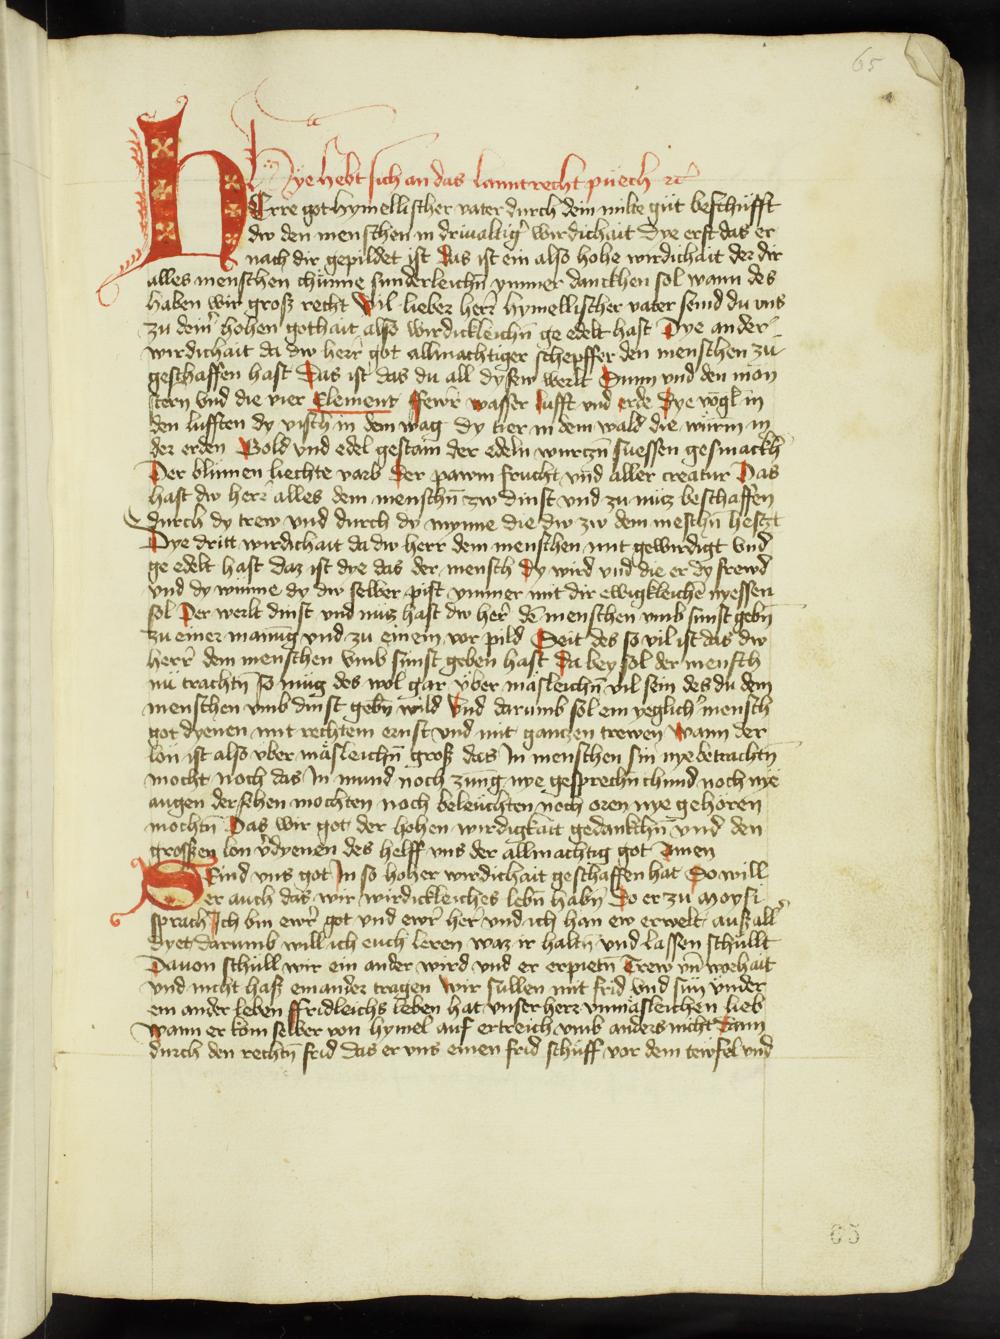 65
Hye hebt sich an das lanntrecht půech ꝛc̄
HErre got hymellischer vater durch dein milte güt beschüfft
dw den menschen in driualtig' wirdichait Dye erst das er
nach dir gepildet ist Das ist ein also hohe wirdichait der dir
alles menschen chünne sunderleichn̄ ymmer danckhen sol wann des
haben wir groß recht Vil lieber herr hymellischer vater seind du vns
zu dein' hohen gothait also wirdickleichn̄ ge edelt hast Dye ander
wirdichait da dw herr got allmachtiger schepffer den menschen zu
geschaffen hast Das ist das du all dysew werlt Sunn vnd den mon
stern vnd die vier Element ffewr wasser lufft vnd erde Dye vogl in
den lufften dy visch in dem wag dy tier in dem wald die würm in
der erden Gold vnd edel gestain der edeln wurczn̄ suessen gesmackh
Der blümen liechte varb Der pawm frucht vnd aller creatur Das
hast dw herr alles dem menschn̄ zw dinst vnd zu nücz beschaffen
durch dy trew vnd durch dy mynne die dw zw dem meschn̄ hetszt
Dye dritt wirdichait da dw herr dem menschen mit gewirdigt vnd
ge edelt hast daz ist dye das der mensch Dy wird vnd die er dy frewd
vnd dy wunne dy dw selber pist ymmer mit dir ewigkleichē nyessen
sol Der werlt dinst vnd nücz hast dw her' dē menschen vmb sunst gebn̄
zu einer manug vnd zu einem vor pild Seit des so vil ist das dw
herr dem menschen vmb sunst geben hast Da bey sol der mensch
nü trachtn̄ so müg des wol gar über mäsleichn̄ vil sein des du dem
menschen vmb dinst gebn̄ wild Vnd darumb sol ein yeglich' mensch
got dyenen mit rechtem ernst vnd mit ganczen trewen Wann der
lon ist also vber mäsleichn̄ groß das In menschen sin nye betrachtn̄
mocht noch das In mund noch zung nye gesprechn̄ chund noch nye
augen dersehen mochten noch beleüchten noch oren nye gehören
mochtn̄ Das wir got der hohen wirdigkait gedanckhn̄ vnd den
grossen lon v'dyenen des helff vns der allmachtig got Amen
SEind vns got In so hoher wirdichait geschaffen hat So will
er auch das wir wirdickleiches lebn̄ habn̄ Do er zu Moysi
sprach Ich bin ewr' got vnd ewr' her' vnd ich han ew erwelt auß all'
dyet darumb will ich euch leren waz ir haltn̄ vnd lassen schüllt
Dauon schüll wir ein ander wird vnd er erpietn̄ Trew vn̄ worhait
vnd nicht haß einander tragen Wir sullen mit frid vnd sün vnder
ein ander leben ffridleichs leben hat vnser herr vnmäsleichen lieb
Wann er kom selber von hymel auf ertreich vmb anders nicht Dann
durch den rechtn̄ frid das er vns einen frid schüff vor dem tewfel vnd
65